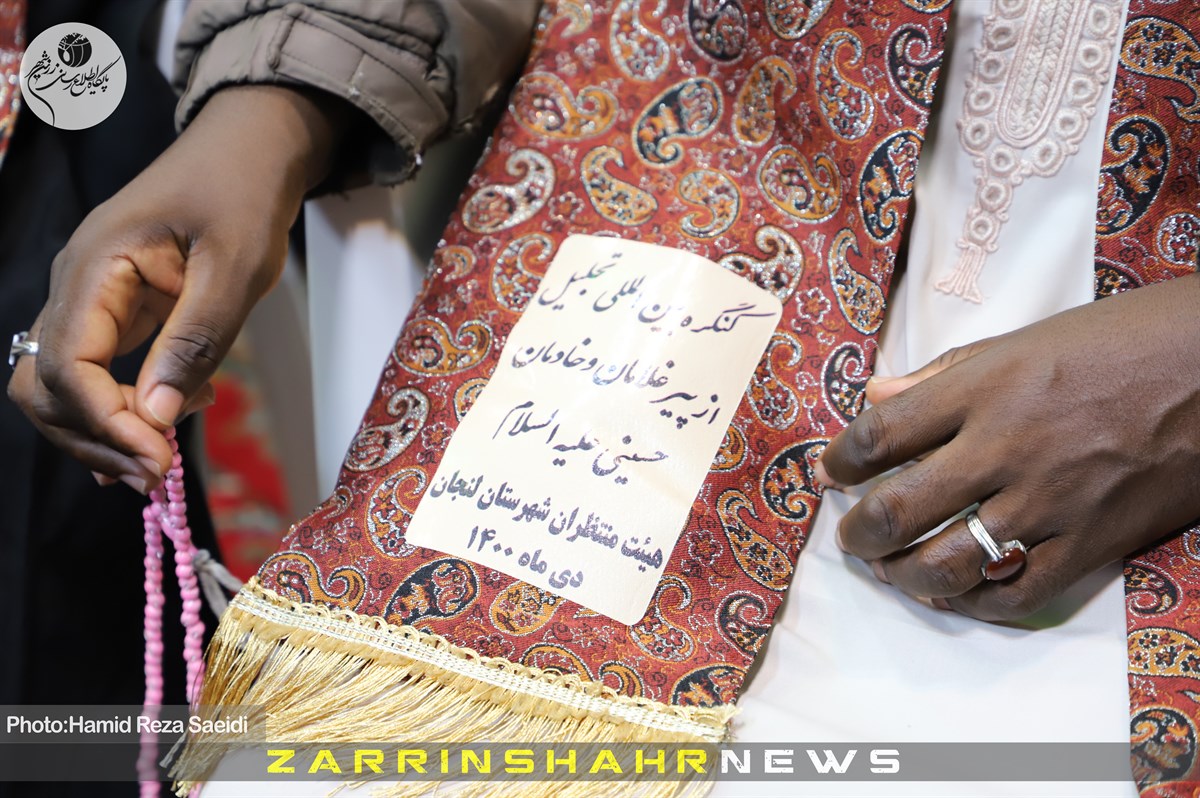 پایگاه اطلاع رسانی زرین‌شهر
کنگره بین المللی تجلیل
از پیر غلامان و خادمان
حسینی علیه السلام
هیئت منتظران شهرستان لنجان
دی ماه ۱۴۰۰
Photo:Hamid Reza Saeidi
ZARRINSHAHRNEWS